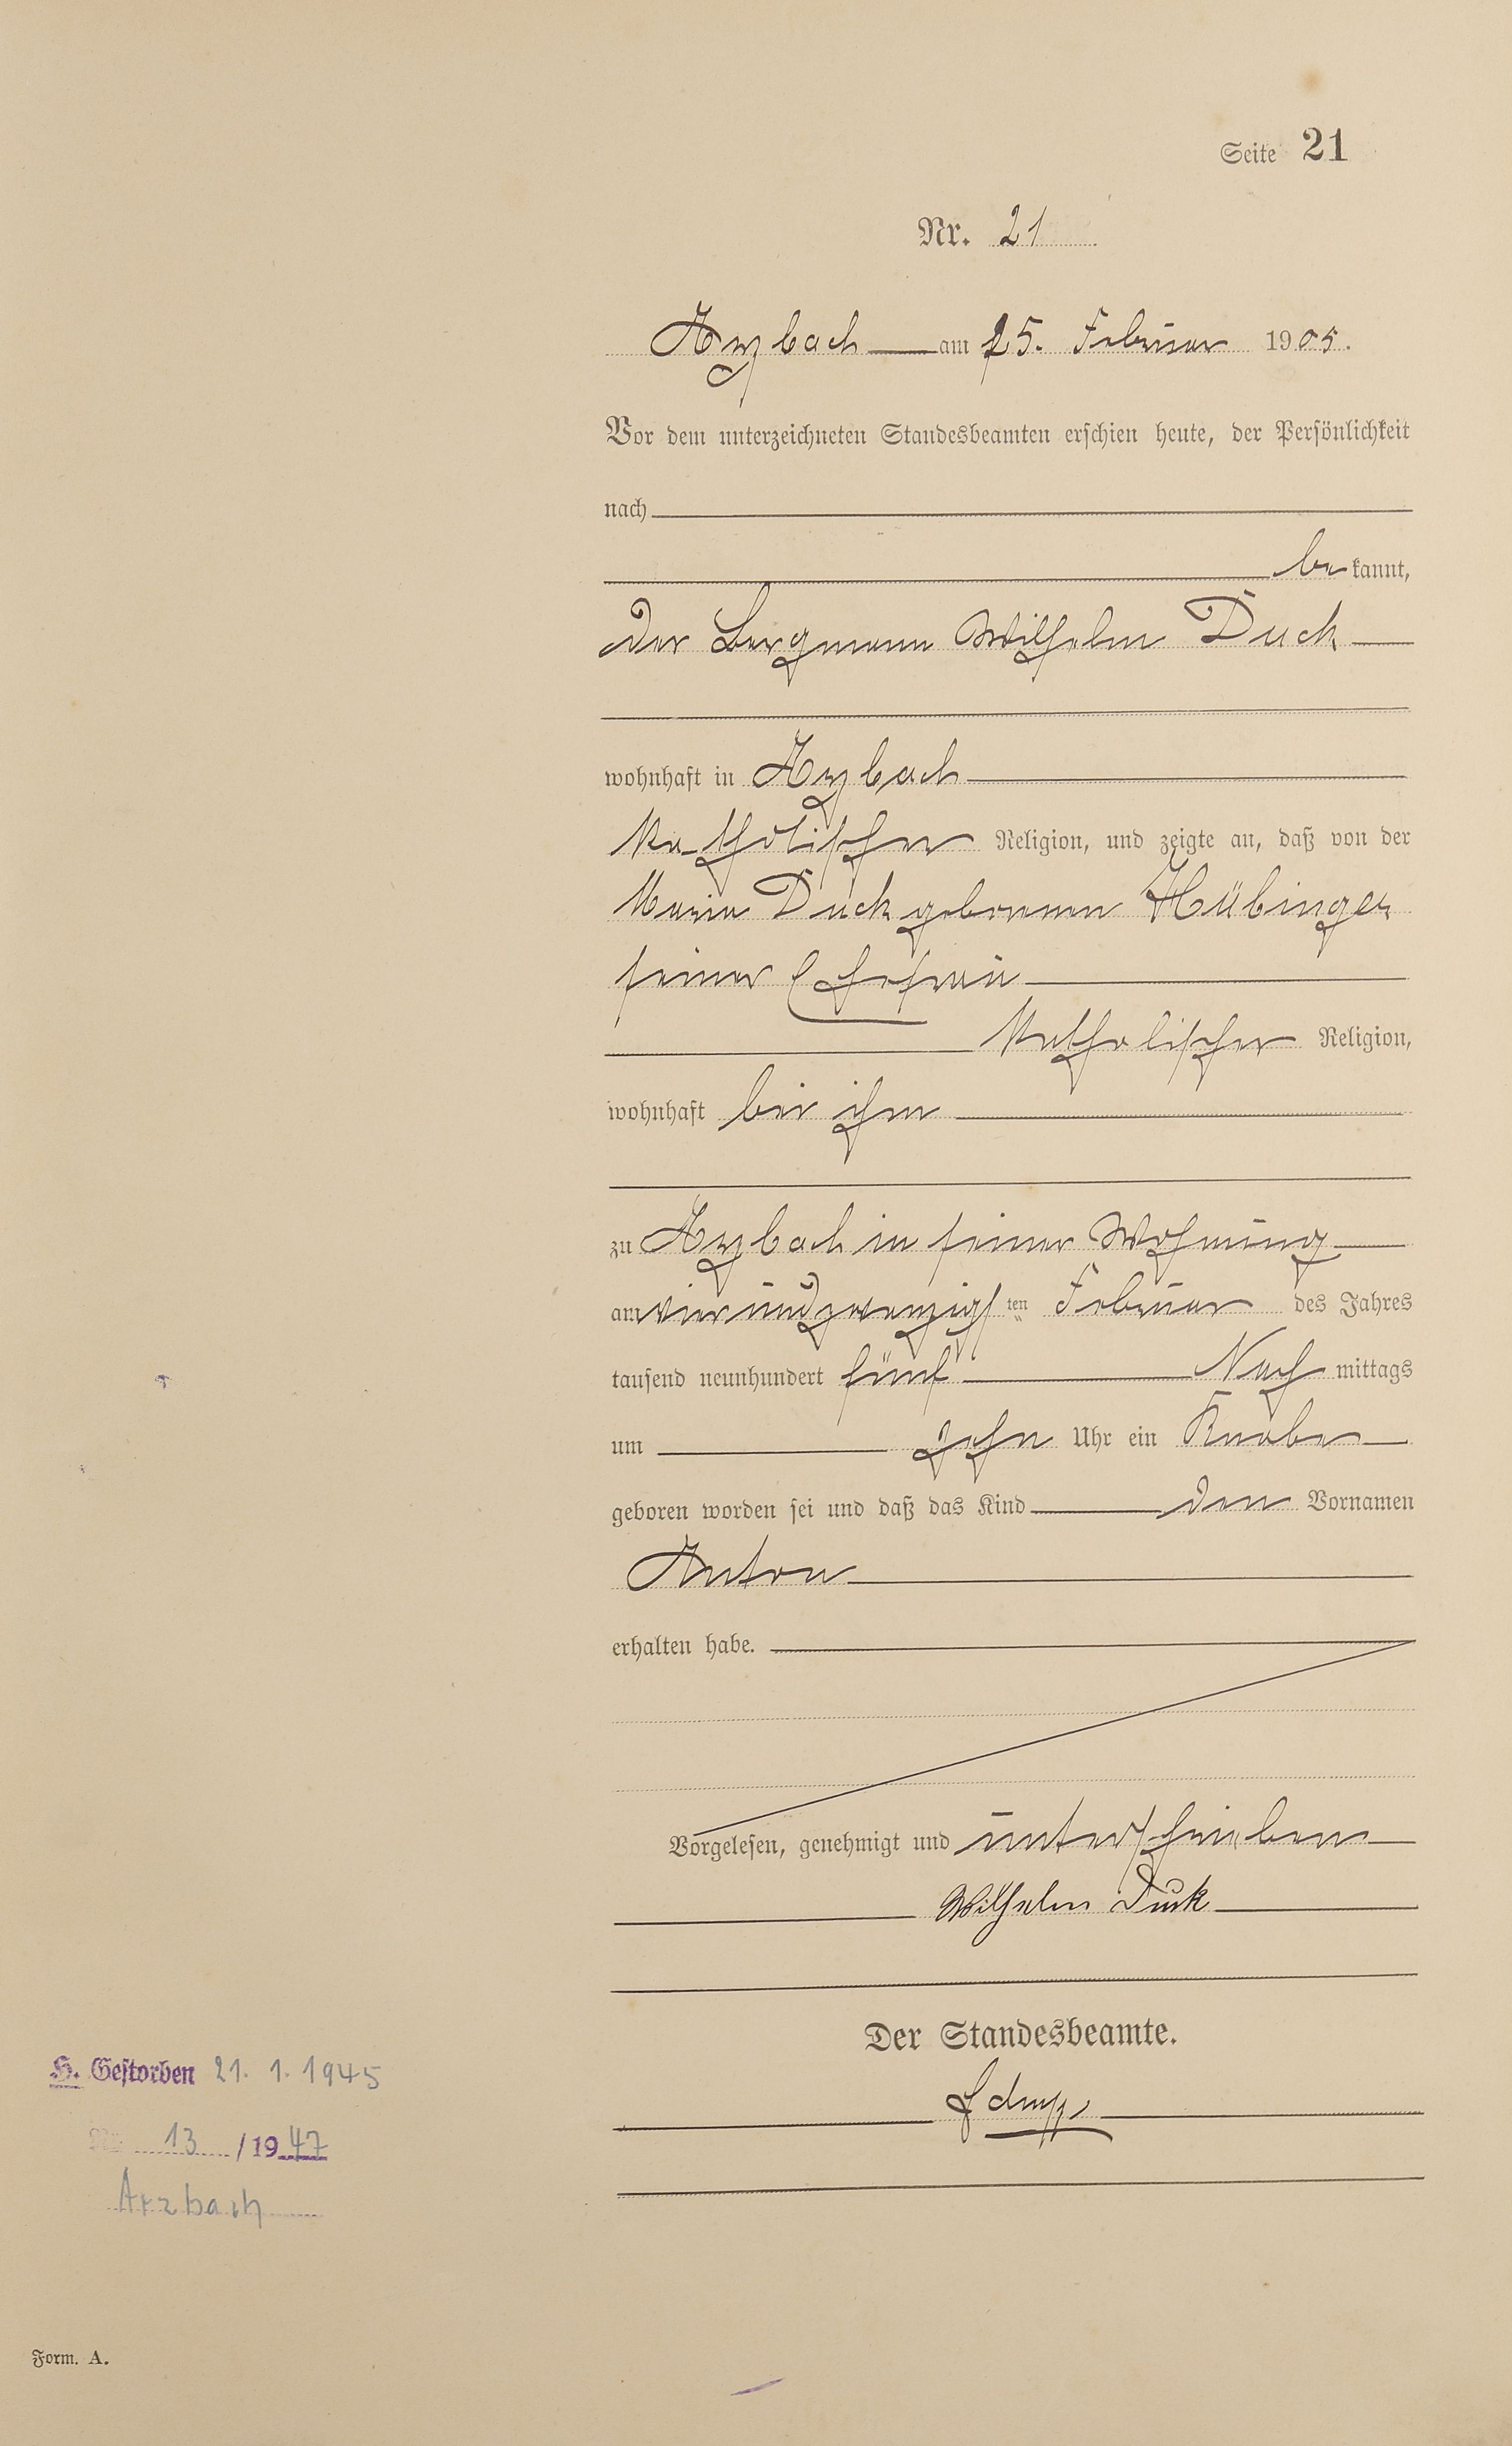 Seite 21
Nr. 21
Arzbach am 25. Februar 1905.
Vor dem unterzeichneten Standesbeamten erschien heute, der Persönlichkeit
nach
be kannt,
der Bergmann Wilhelm Duck
wohnhaft in Arzbach
katholischer Religion, und zeigte an, daß von der
Maria Duck geborenen Hübinger
seiner Ehefrau
katholischer Religion,
wohnhaft bei ihm
zu Arzbach in seiner Wohnung
am vierundzwanzigsten Februar des Jahres
tausend neunhundert fünf Nach mittags
um zehn Uhr ein Knabe
geboren worden sei und daß das Kind den Vornamen
Anton
erhalten habe.
Vorgelesen, genehmigt und unterschrieben
Wilhelm Duck
Der Standesbeamte.
H. Gestorben 21. 1. 1945
Nr. 13 / 1947
Arzbach
Form. A.